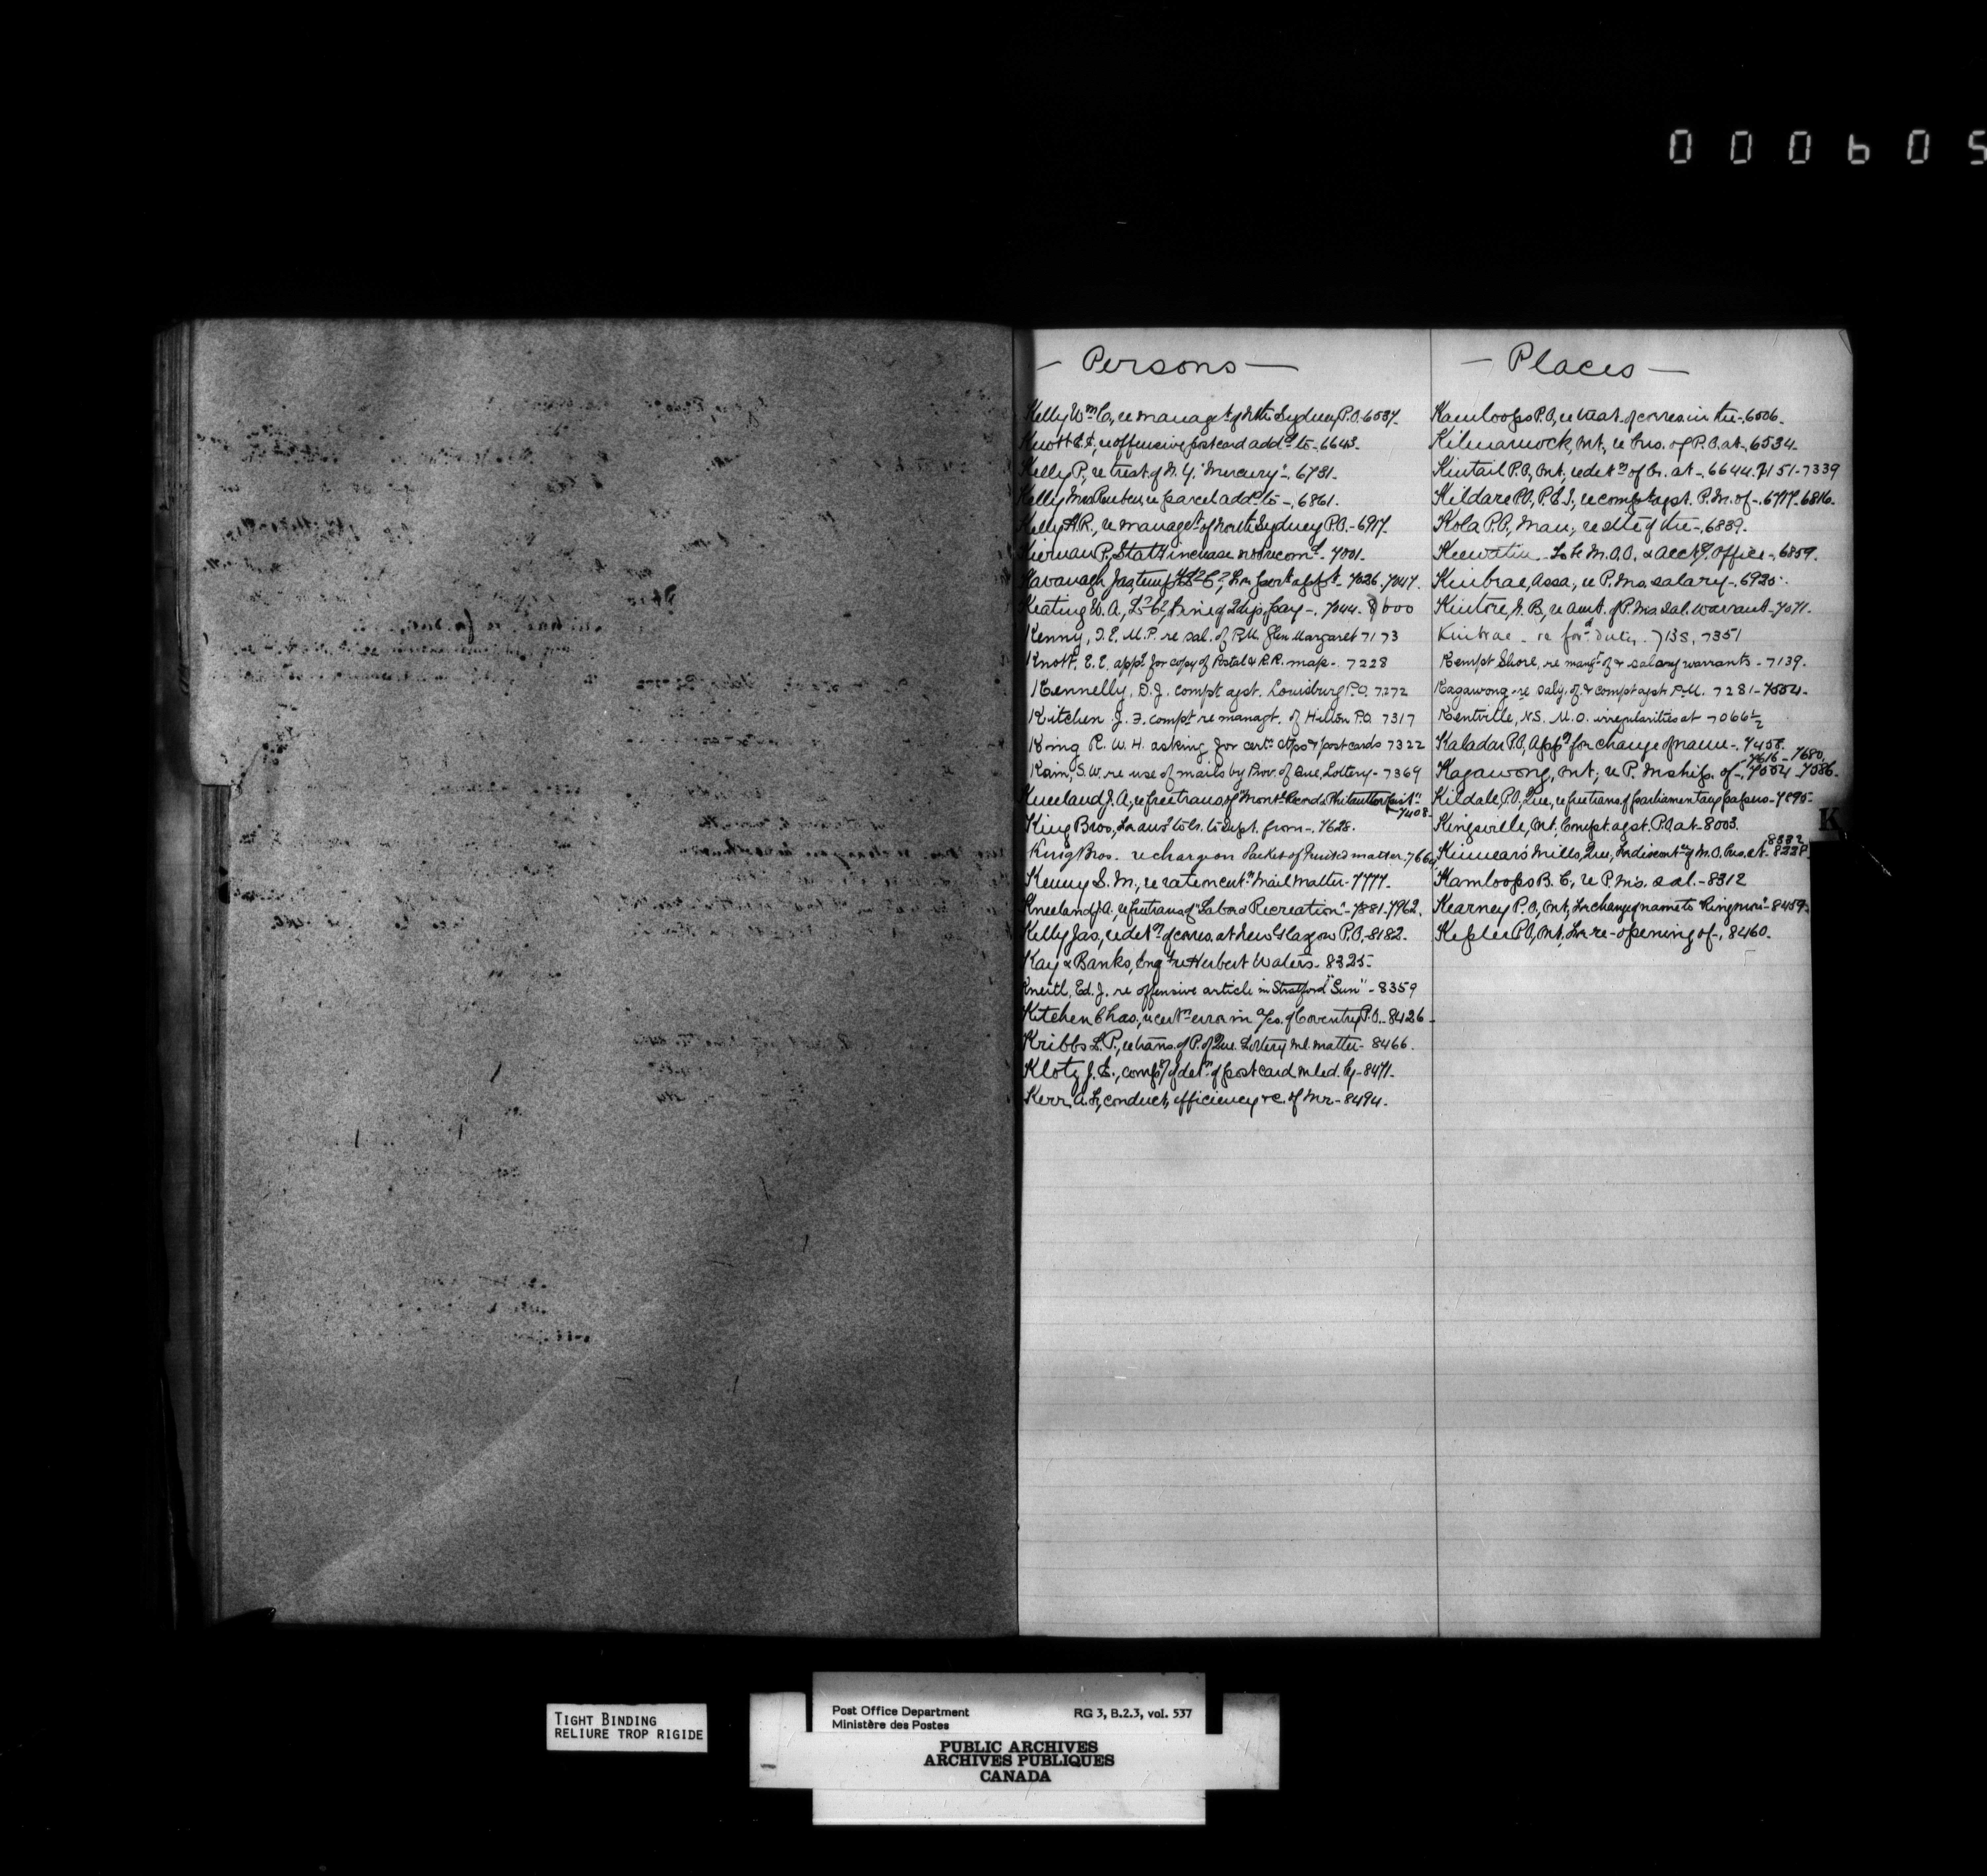 000605
— Persons —
Kelly Wm C., re managt of Nth Sydney P.O. 6537.
Knott E.E., re offensive post card addd to - 6643.
Kelly P., re treat. of N.Y. "Mercury" - 6781.
Kelly Mrs Reuben, re parcel addd to - 6861.
Kelly A.R., re managet of North Sydney P.O. - 6917.
Kiernan P., Staty increase not recomd. 7001.
Kavanagh Jas, temp 7026, 7047.
Keating W.A., fine of 2 dys. pay -. 7044. 8000
Kenny, T.E. M.P. re sal. of P.M. Glen Margaret 7173
Knott, E.E. appn for copy of Postal & R.R. map - 7228
Kennelly, D.J. compt agst. Louisburg P.O. 7272
Kitchen J.F. compt re managt. of Hillton P.O. 7317
King R.W.H. asking for certn stps & post cards 7322
Kain, S.W. re use of mails by Prov. of Que. Lottery - 7369
Kneeland J.A., re free trans of "Montl
7408
King Bros., for ansr to lr. to Dept. from -. 7628.
King Bros. re charge on Packet of Printed matter. 7669
Kenny S.M., re rate on certn Mail Matter - 7777.
Kneeland J.A., re free trans of "Labor & Recreation" - 7881-7962.
Kelly Jas, re detn of corres. at New Glasgow P.O. 8182.
Kay & Banks, Engd re Herbert Waters - 8325-
Kneitl, Ed. J. re offensive article in Stratford "Sun" - 8359
Kitchen Chas., re certn error in a/cs. of Coventry P.O. - 8426
Kribbs L.P., re trans. of P. of Que. Lottery ml. matter - 8466.
Klotz J.E., compt of detn of post card mled. by - 8471.
Kerr A.F., conduct, efficiency &c. of Mr - 8494.
— Places —
Kamloops P.O., re treat. of corres. in the - 6506.
Kilmarnock, Ont., re bus. of P.O. at - 6534.
Kintail P.O., Ont., re detn of lr. at - 6644. 7151-7339
Kildare P.O., P.E.I., re compt agst. P.M. of - 6717. 6816.
Kola P.O., Man., re site of the - 6839.
Keewatin M.O.O. & Acctg. Office - 6859.
Kinbrae, Assa., re P.M's. salary - 6925.
Kintore, N.B., re amt. of P.M's sal. warrant - 7071.
Kinbrae - re ford duty. 7135, 7351
Kempt Shore, re mangt of & salary warrants - 7139.
Kagawong - re saly. of & compt agst P.M. 7281 - 7554.
Kentville, N.S. M.O. irregularities at 7066½
Kaladar P.O., Appn for change of name -. 7458.
7616 - 7680.
Kagawong, Ont., re P. Mship. of -, 7554 - 7586.
Kildale, P.O., Que., re free trans. of parliamentary papers - 7895-
Kingsville, Ont., Compt. agst. P.O. at - 8003.
8332
Kinnear's Mills, Que., for discontce of M.O. bus. at - 8228.
Kamloops B.C., re P.M's. sal. - 8312
Kearney P.O., Ont., for change of name to - 8459.
Kepler P.O., Ont., for re-opening of -, 8460.
K
TIGHT BINDING
RELIURE TROP RIGIDE
Post Office Department RG 3, B.2.3, vol. 537
Ministère des Postes
PUBLIC ARCHIVES
ARCHIVES PUBLIQUES
CANADA